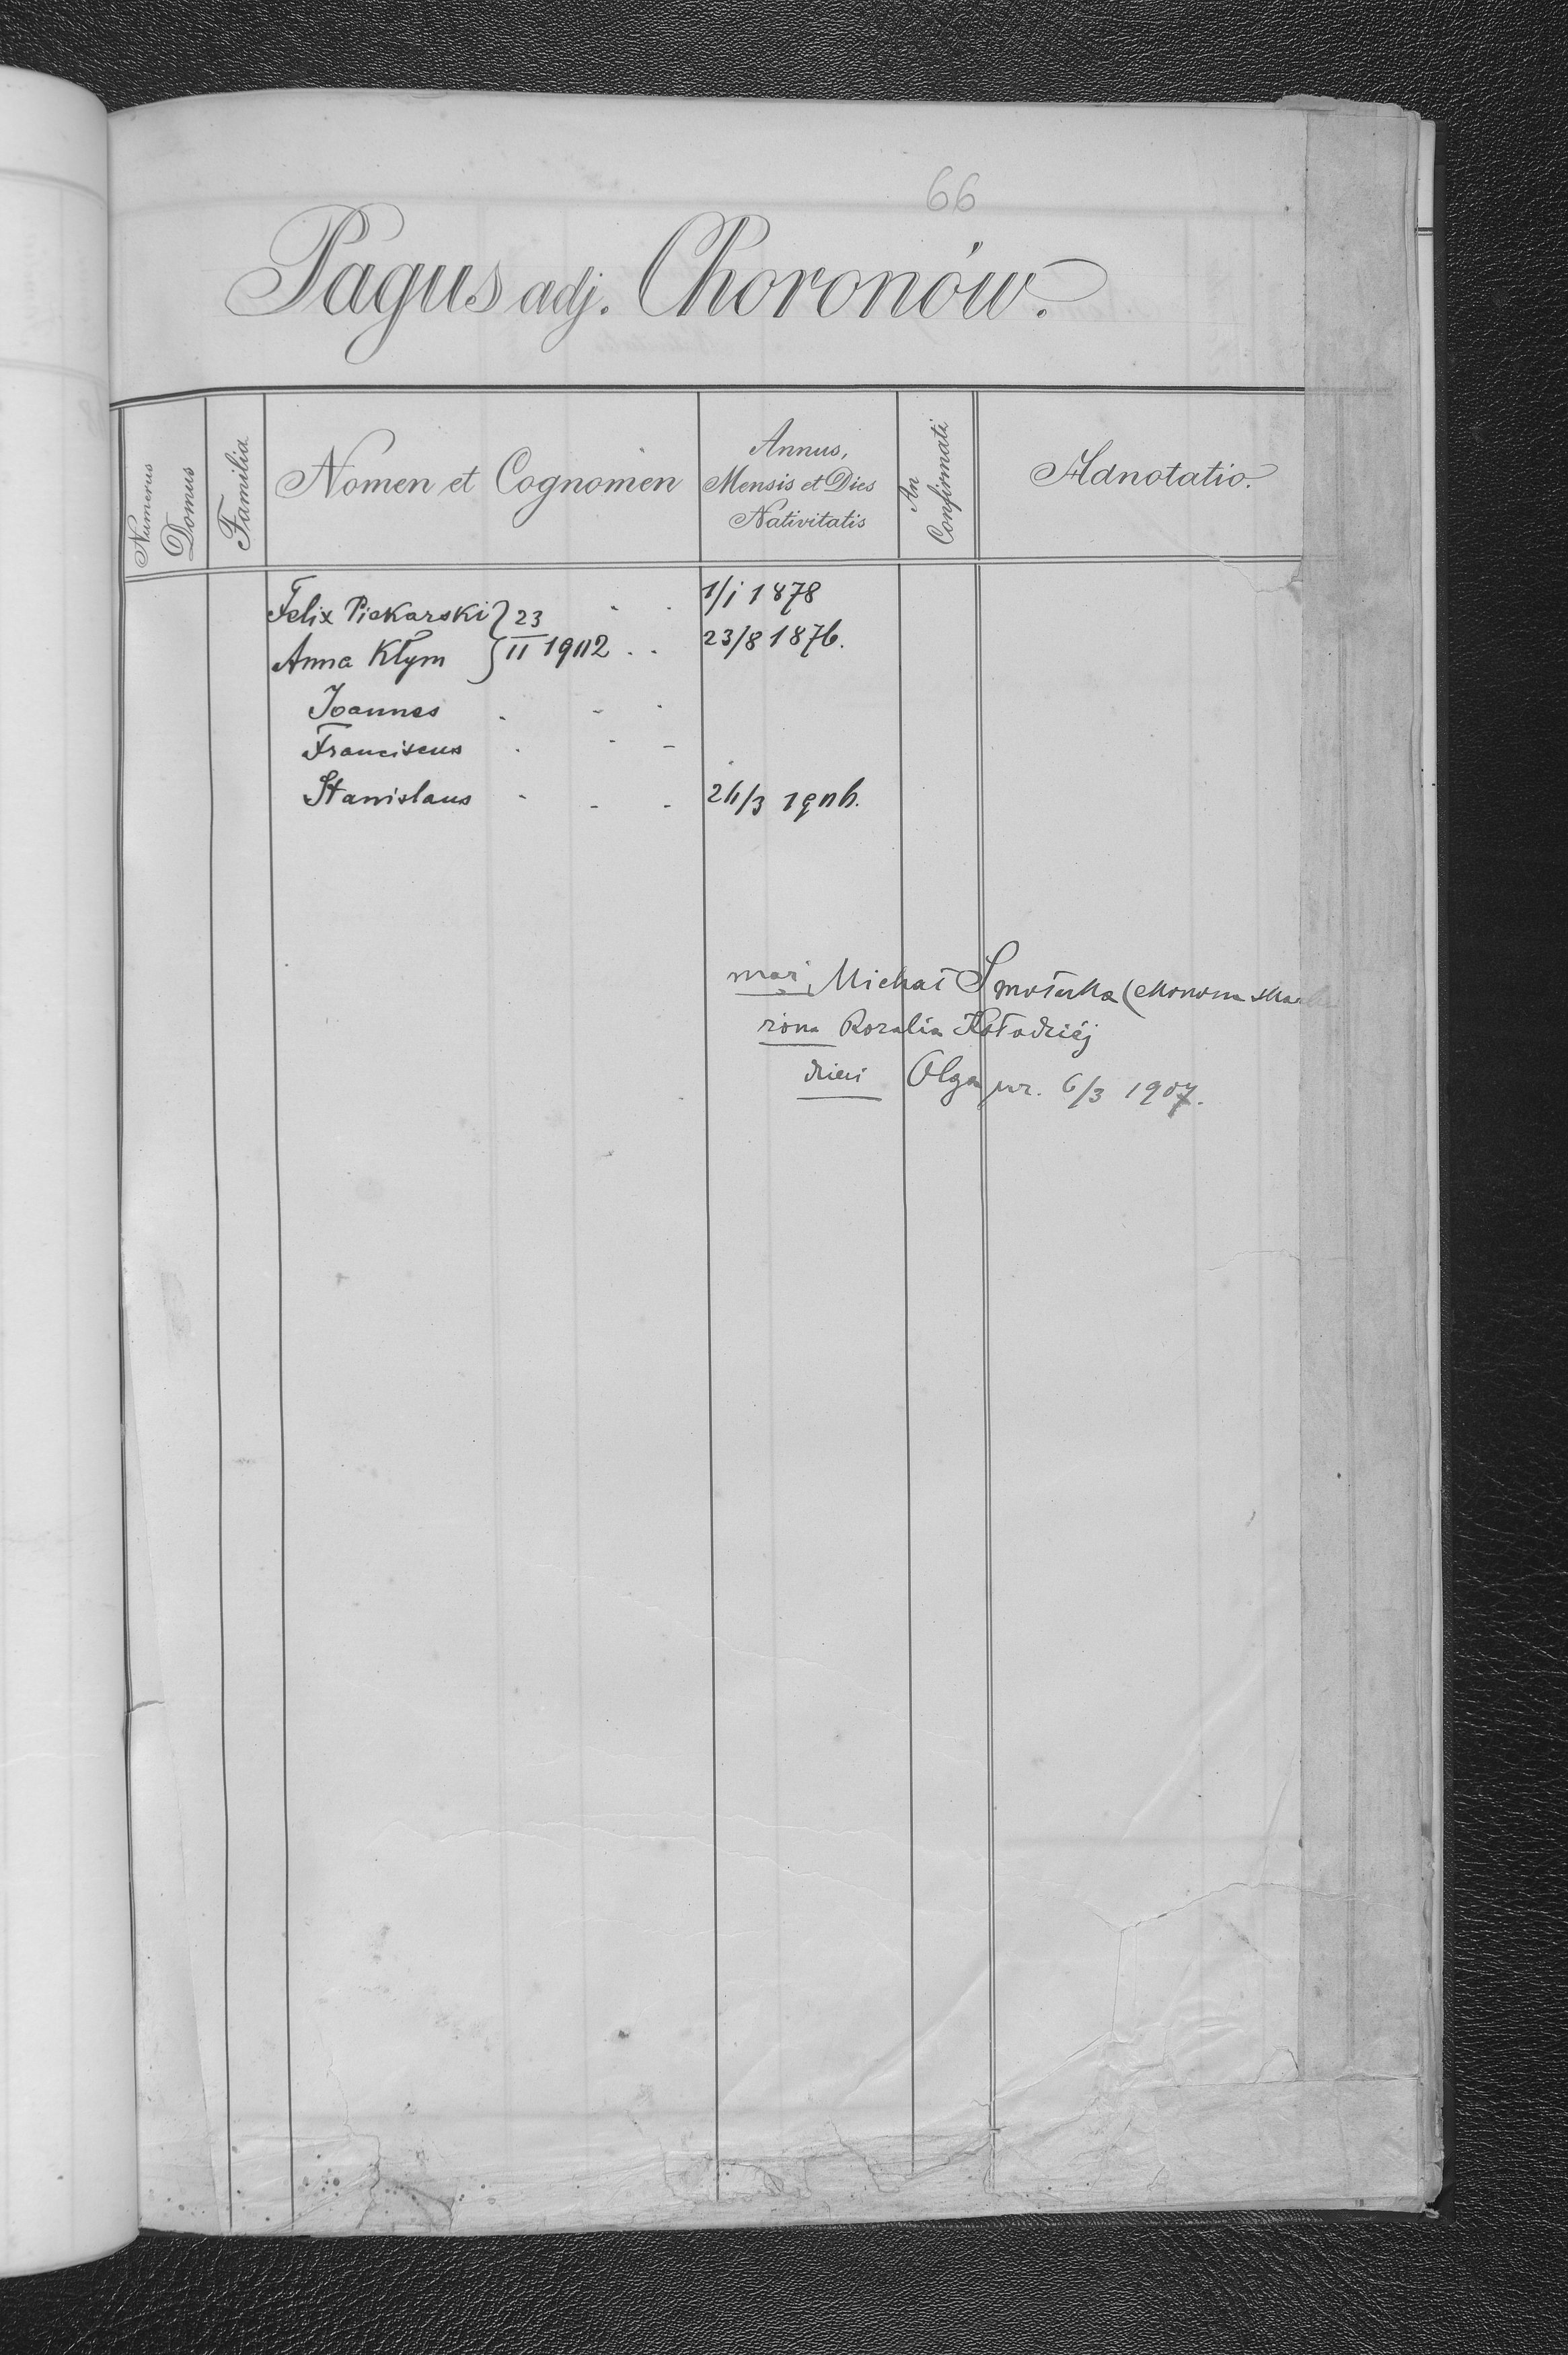 66
Pagus adj. Choronów.
Numerus Domus
Familia
Nomen et Cognomen
Annus, Mensis et Dies Nativitatis
An Confirmati
Adnotatio.
Felix Piekarski } 23 1/1 1878
Anna Kłym } II 1902 . . 23/8 1876.
Joannes . - .
Franciscus . - -
Stanislaus - - - 24/3 1906.
mąż Michał Smołucha (ekonom
żona Rozalia Kołodziéj
dzieci Olga ur. 6/3 1907.